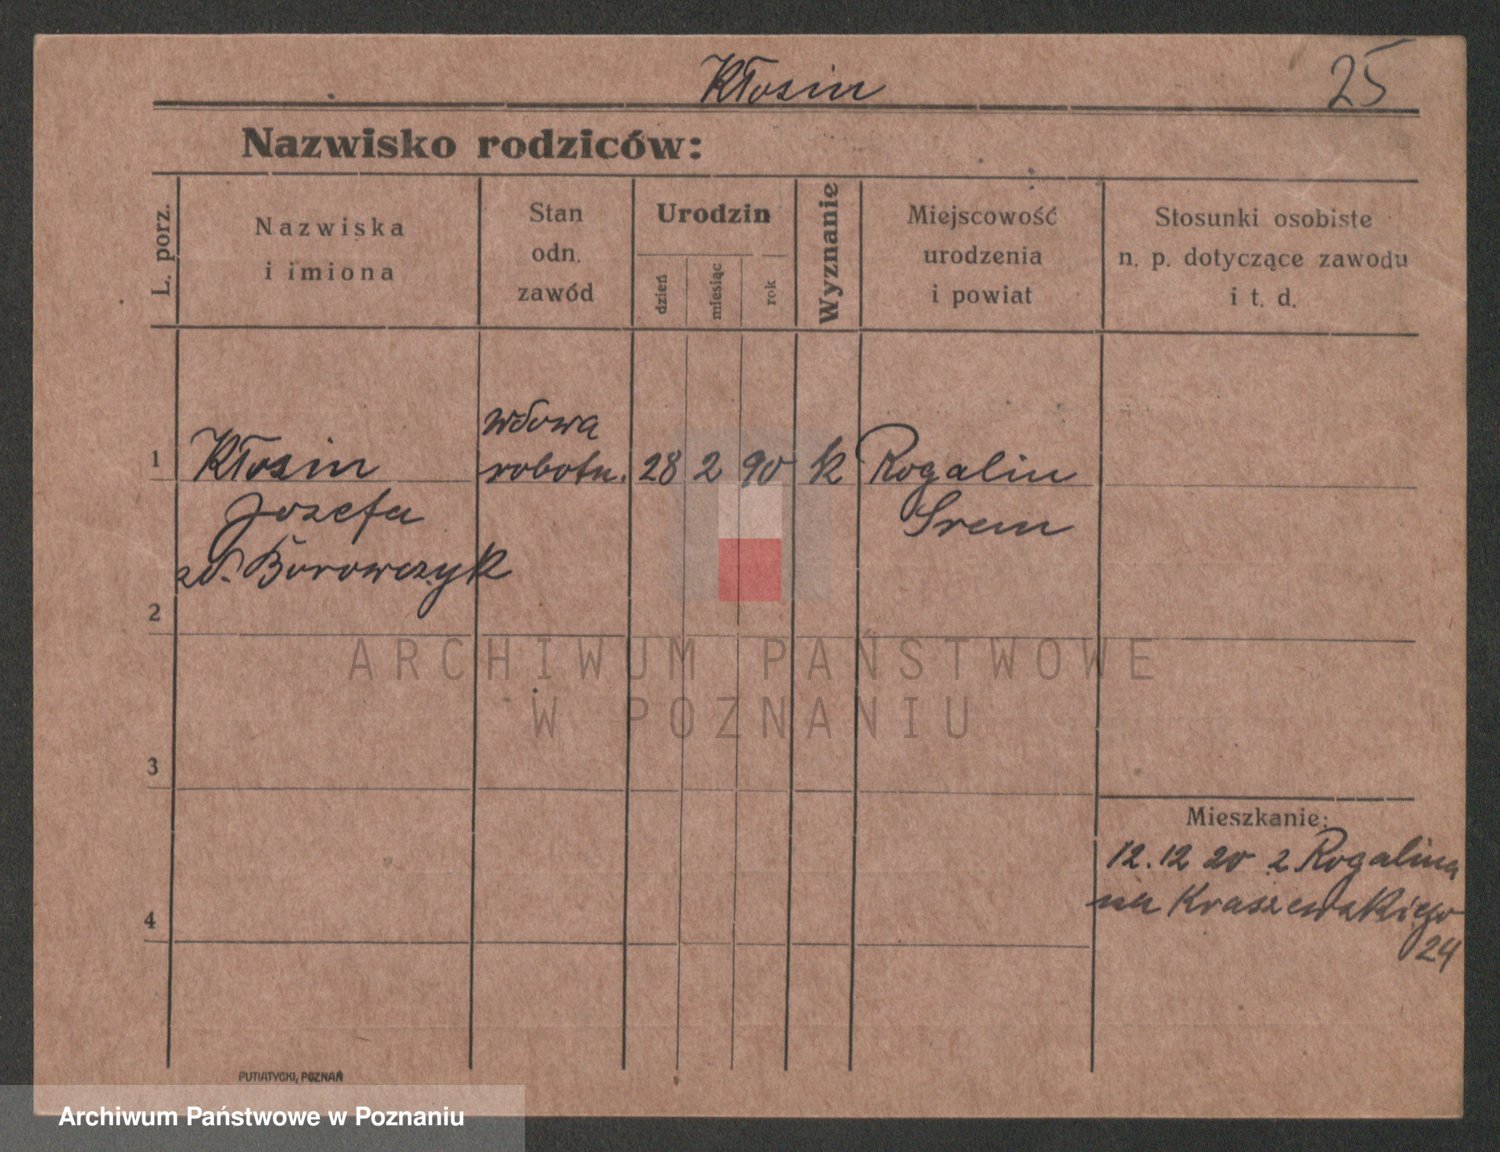 Kłosin
25
Nazwisko rodziców:
L. porz.
Nazwiska
i imiona
Stan
odn.
zawód
Urodzin
dzień
miesiąc
rok
Wyznanie
Miejscowość
urodzenia
i powiat
Stosunki osobiste
n. p. dotyczące zawodu
i t. d.
wdowa
1 Kłosin robotn. 28 2 90 k Rogalin
Jozefa Srem
zd. Borowczyk
2
ARCHIWUM PAŃSTWOWE
W POZNANIU
3
Mieszkanie:
12.12 20 z Rogalina
na Kraszewskiego
24
4
PUTIATYCKI, POZNAŃ
Archiwum Państwowe w Poznaniu